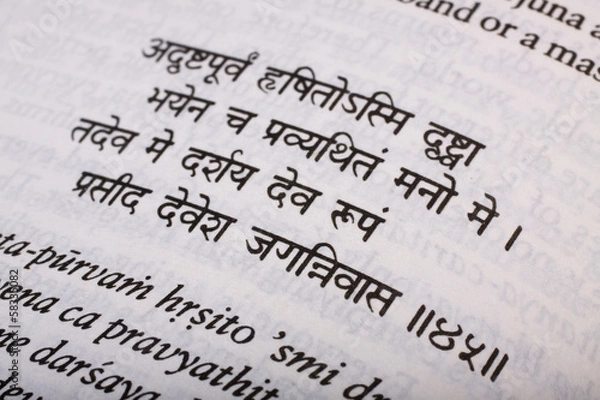 juna a
band or a mas
अदृष्टपूर्वं हृषितोऽस्मि दृष्ट्वा
भयेन च प्रव्यथितं मनो मे ।
तदेव मे दर्शय देव रूपं
प्रसीद देवेश जगन्निवास ॥४५॥
ṭa-pūrvaṁ hṛṣito 'smi dṛ
na ca pravyathit
e darśaya
Adobe Stock | #58336082